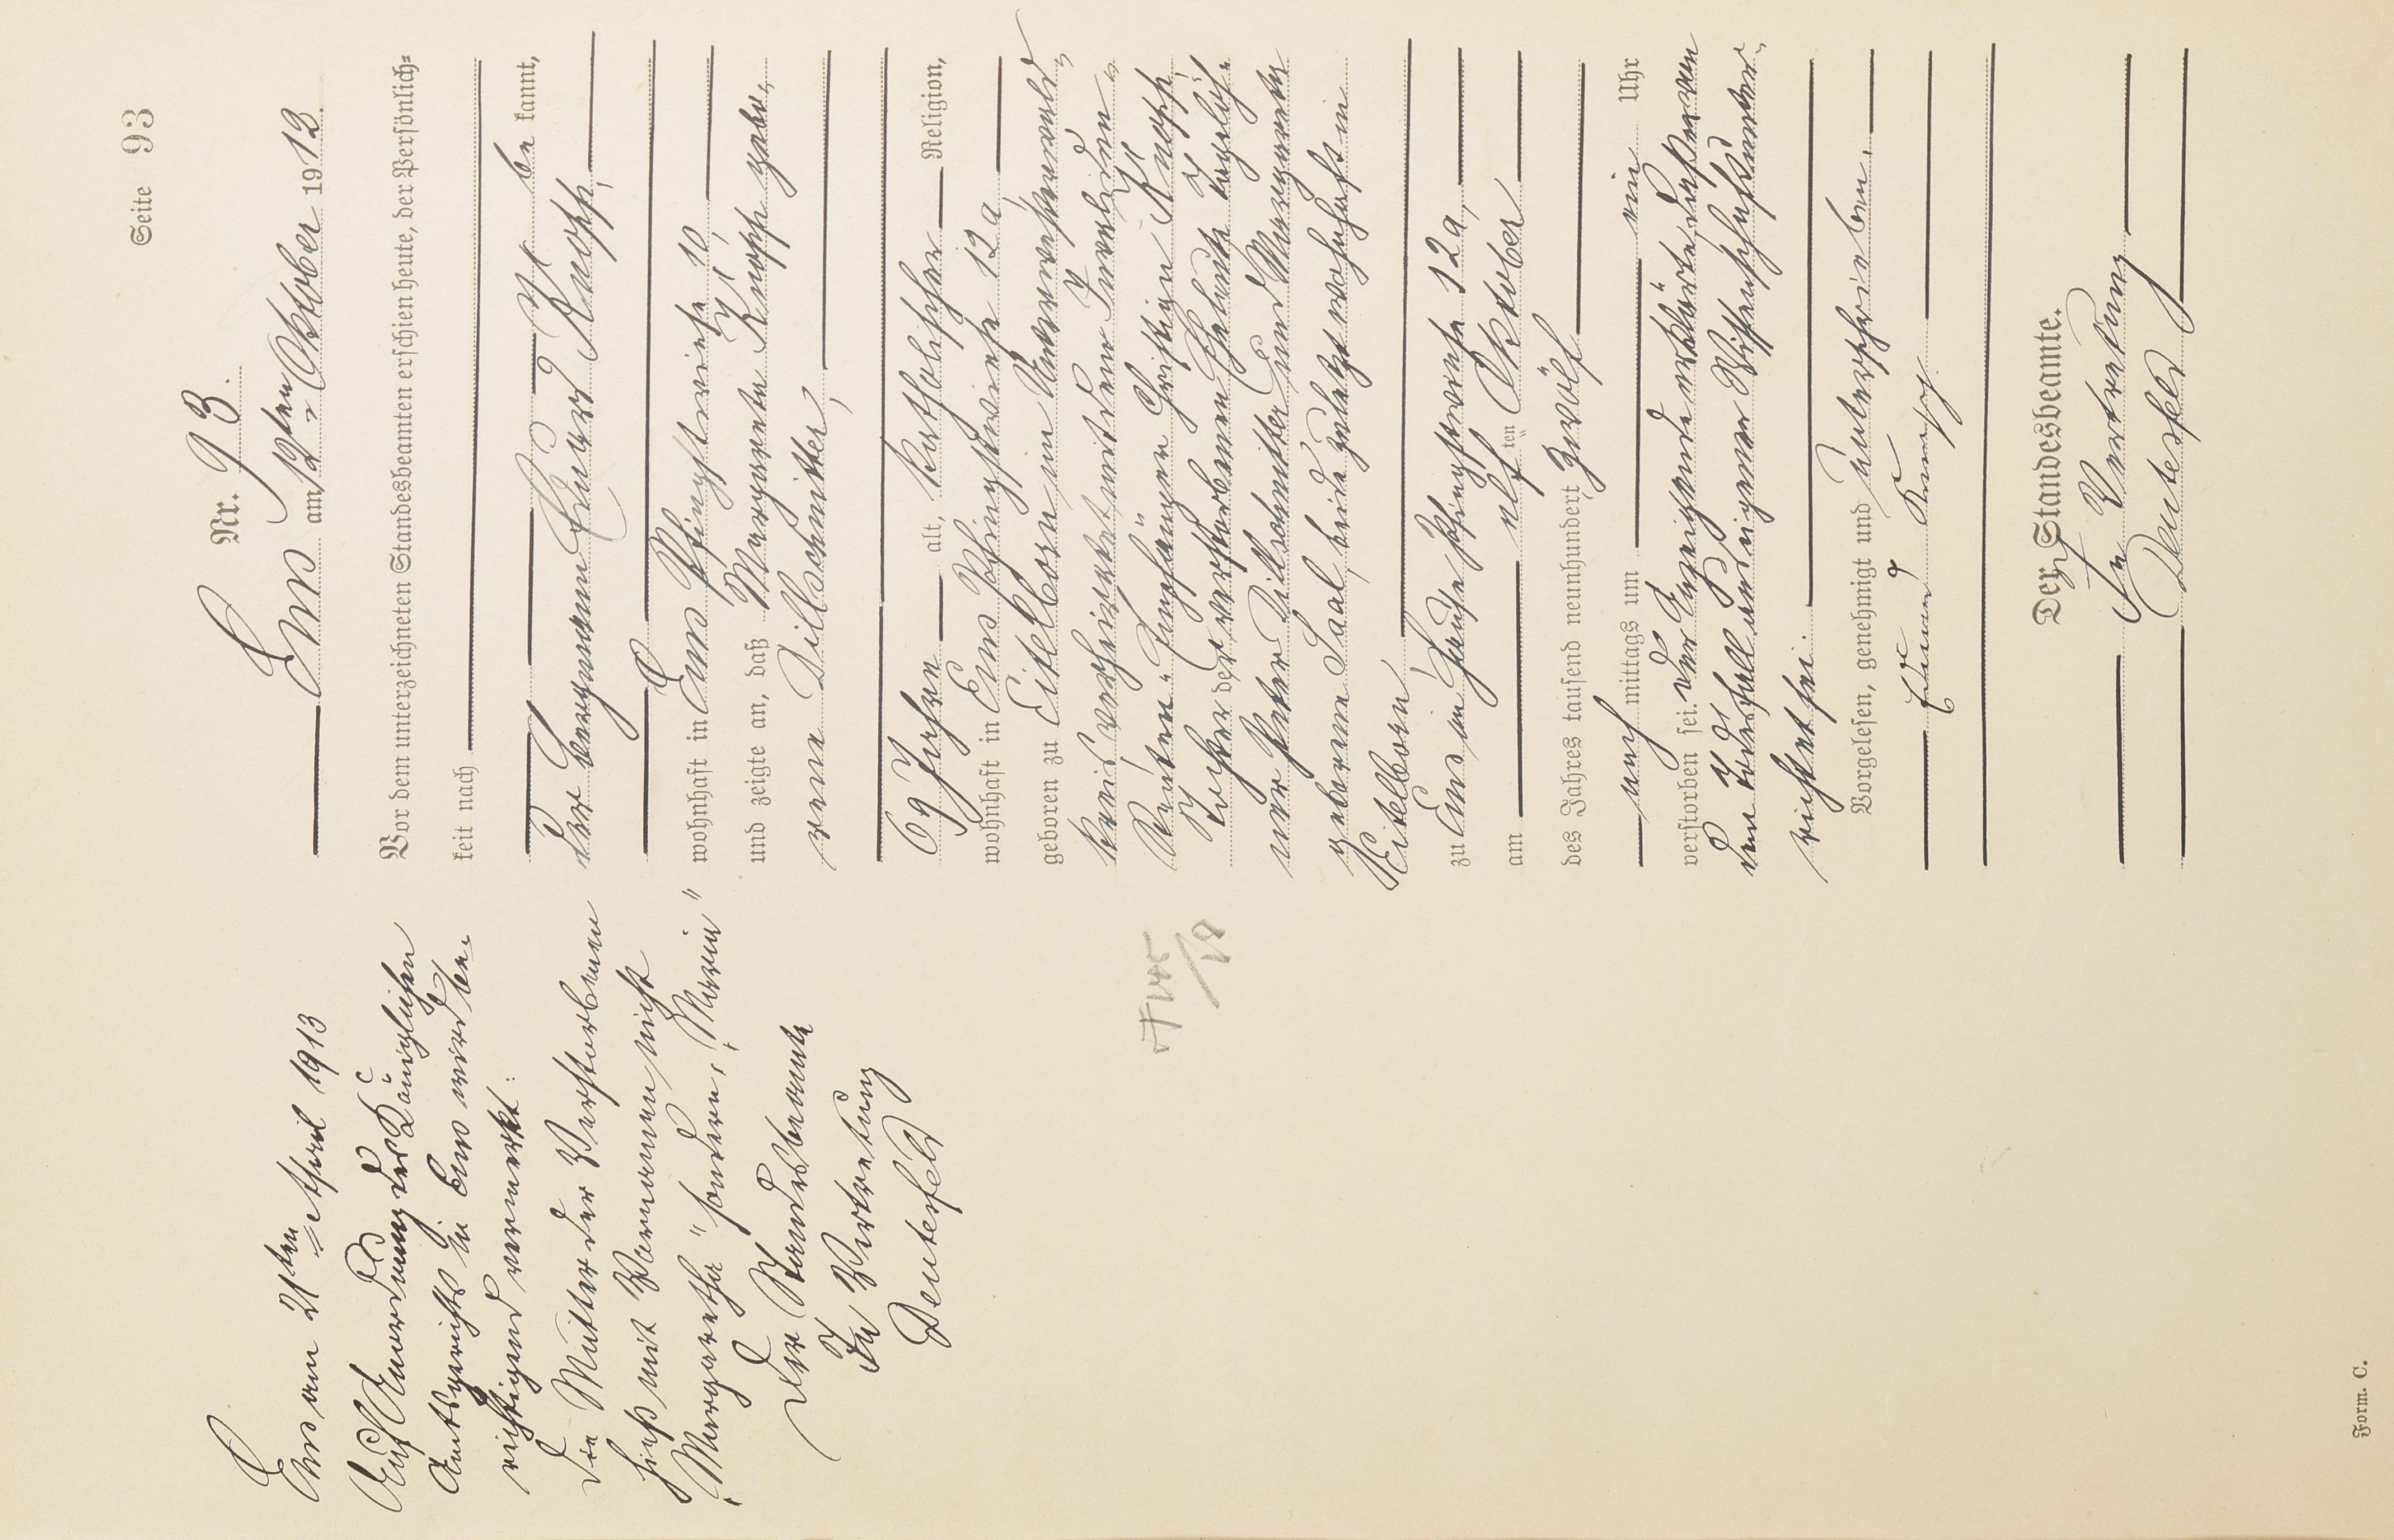 Seite 93
Nr. 93.
Ems am 12ten Oktober 1912.
Vor dem unterzeichneten Standesbeamten erschien heute, der Persönlich-
keit nach
be kannt,
der Bergmann Eduard Knopp,
wohnhaft in Ems Pfingstwiese 10,
und zeigte an, daß Margareta Knopp gebo-
rene Dillschnitter,
69 Jahre alt, katholischer Religion,
wohnhaft in Ems Pfingstwiese 12a,
geboren zu Eitelborn im Unterwesterwald-
kreis, verheiratet mit dem Invaliden-
Renten-Empfänger Knopp,
Tochter der verstorbenen Eheleute
ner Peter Dillschnitter und Margareta
geborene Saal, beide zuletzt wohnhaft in
Eitelborn,
zu Ems im Hause Pfingstwiese 12a,
am elften Oktober
des Jahres tausend neunhundert zwölf
nach mittags um ein Uhr
verstorben sei. Der Anzeigende erklärte, daß er von
dem Todesfall aus eigener Wissenschaft unter-
richtet sei.
Vorgelesen, genehmigt und unterschrieben.
Eduard Knopp
Der Standesbeamte.
In Vertretung
Deutesfeld
Ems am 21ten April 1913
Auf Anordnung des Königlichen
Amtsgerichts in Ems wird be-
richtigend vermerkt:
Die Mutter der Verstorbenen
hieß mit Vornamen nicht
„Margaretha" sondern „Maria"
Der Standesbeamte
In Vertretung
Deutesfeld
Form. C.